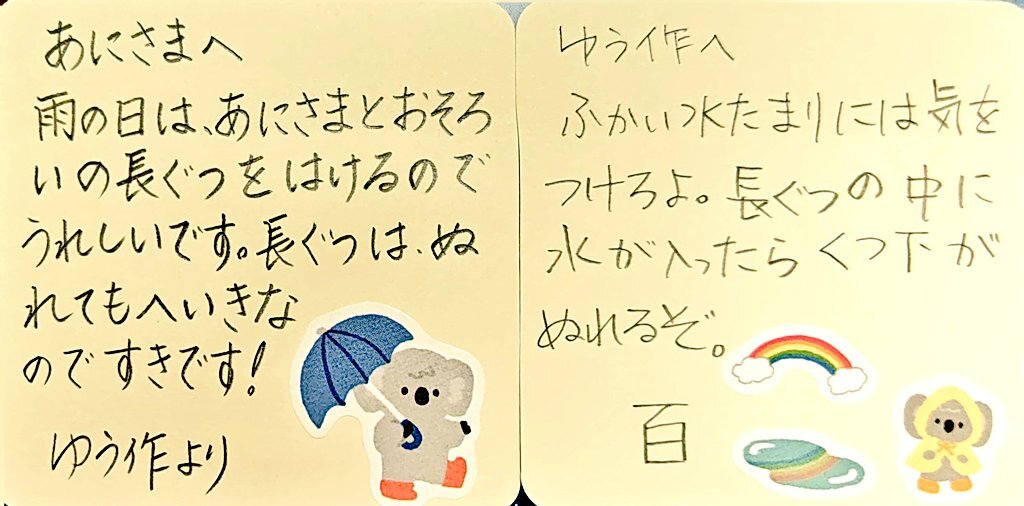 あにさまへ
雨の日は、あにさまとおそろ
いの長ぐつをはけるので
うれしいです。長ぐつは、ぬ
れてもへいきな
のですきです!
ゆう作より
ゆう作へ
ふかい水たまりには気を
つけろよ。長ぐつの中に
水が入ったらくつ下が
ぬれるぞ。
百